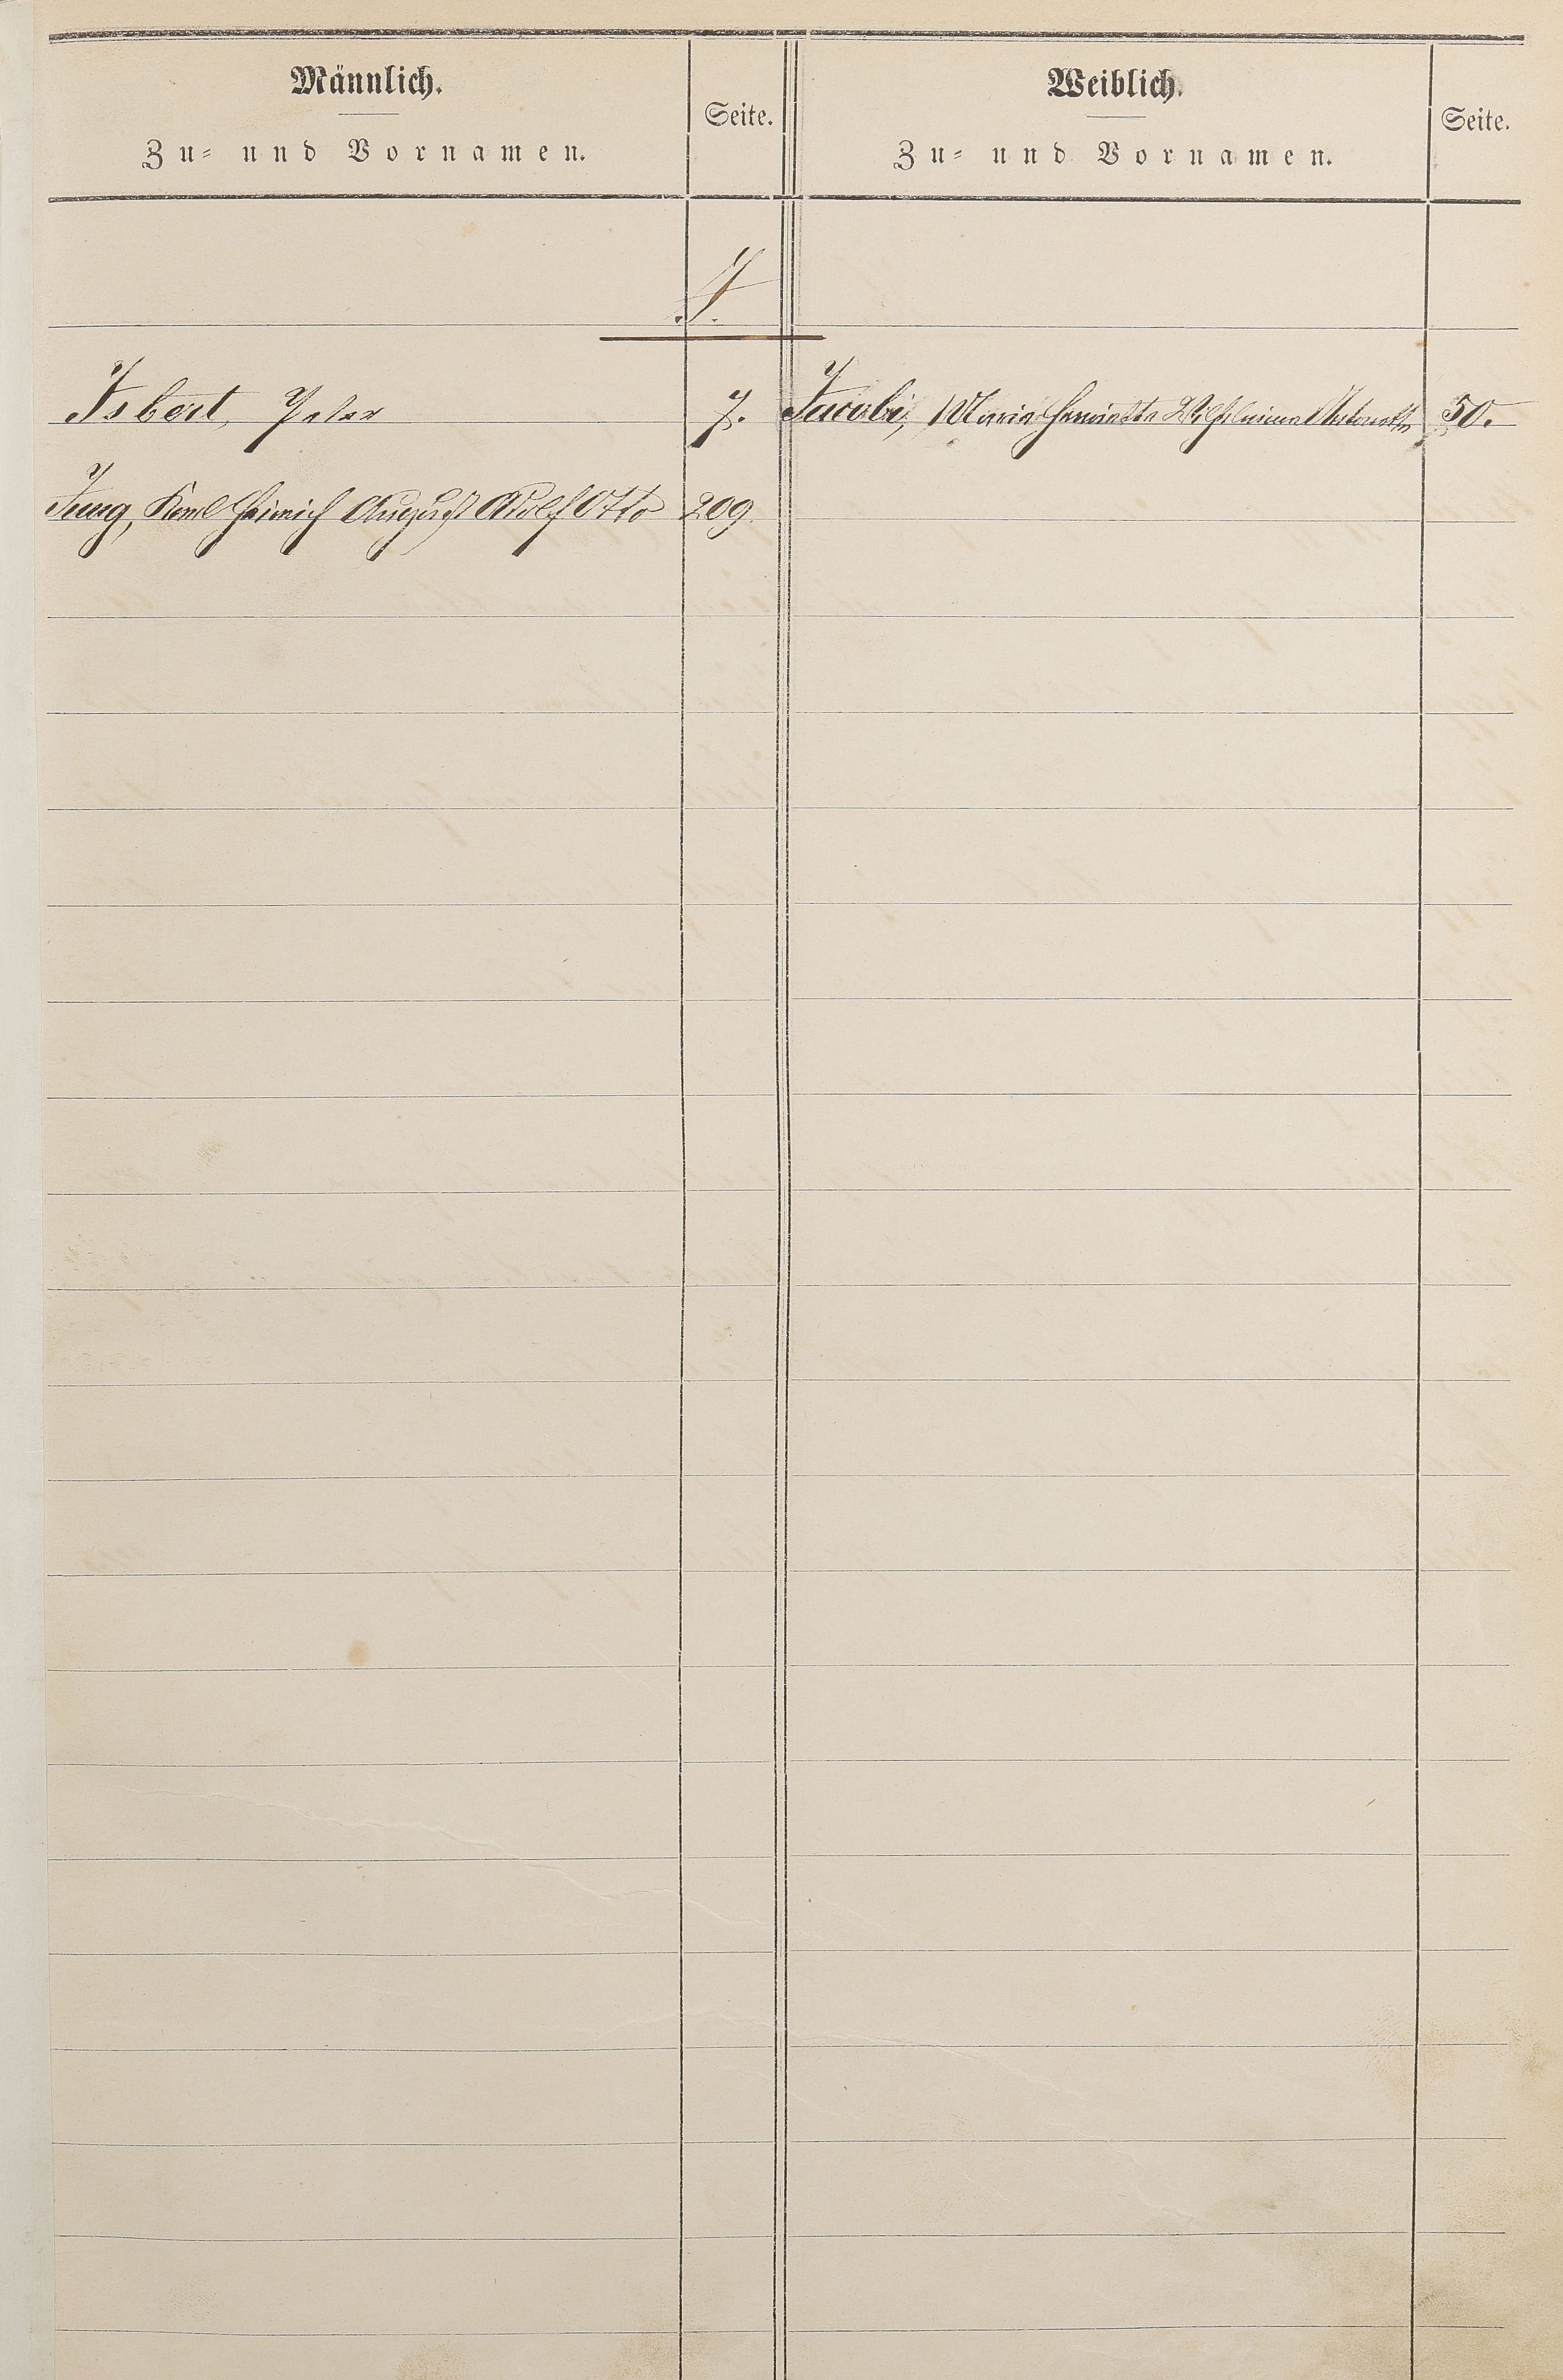 Männlich.
Zu- und Vornamen.
Seite.
Weiblich.
Zu- und Vornamen.
Seite.
J.
Isbert, Peter 7.
Jacobi, Maria Henriette Wilhelmina Antonette 50.
Jung, Karl Heinrich August Adolf Otto 209.